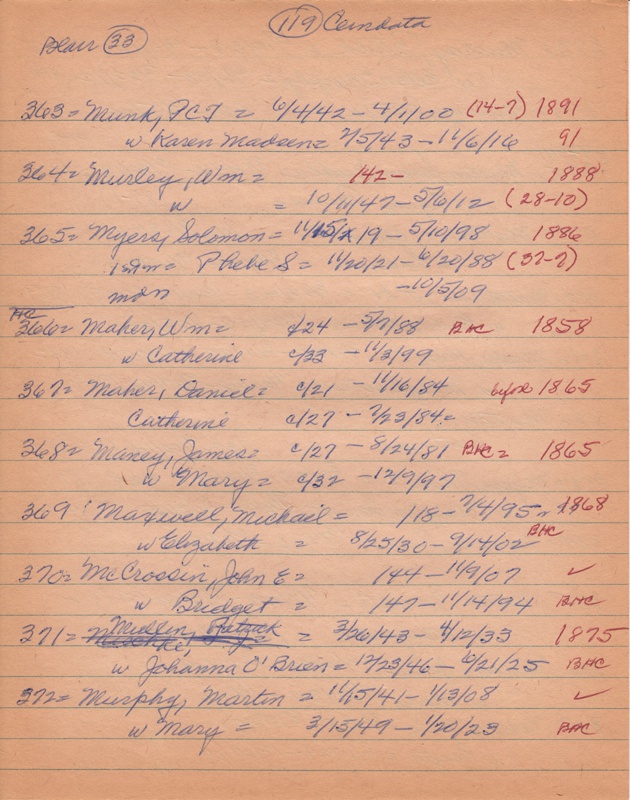 Blair 33
119 Cemdata
363 = Munk, FCT = 6/4/42 - 4/1/00 (14-7) 1891
w Karen Madsen = 7/5/43 - 11/6/16 91
364 = Murley, Wm = 142- 1888
w = 10/11/47 - 5/6/12 (28-10)
365 = Myers, Solomon = 11/15/19 - 5/10/98 1886
1st m = Phebe S = 11/20/21 - 6/20/88 (37-7)
mdn - 10/5/09
HC
366 = Maher, Wm = c/24 - 5/7/88 BHC 1858
w Catherine c/33 - 11/3/99
367 = Maher, Daniel = c/21 - 11/16/84 before 1865
Catherine c/27 - 7/23/84 =
368 = Maney, James = c/27 - 8/24/81 BHC = 1865
w Mary = c/32 - 12/9/97
369 Maxwell, Michail = 118 - 7/4/95 1868
w Elizabeth = 8/25/30 - 9/14/02 BHC
370 = McCrossin, John E = 144 - 11/9/07 ✓
w Bridget = 147 - 11/14/94 BHC
371 = Mullen, Patrick = 3/26/43 - 4/12/33 1875
w Johanna O'Brien = 12/23/46 - 6/21/25 BHC
372 = Murphy, Martin = 11/15/41 - 1/13/08 ✓
w Mary = 3/15/49 - 1/20/23 BHC